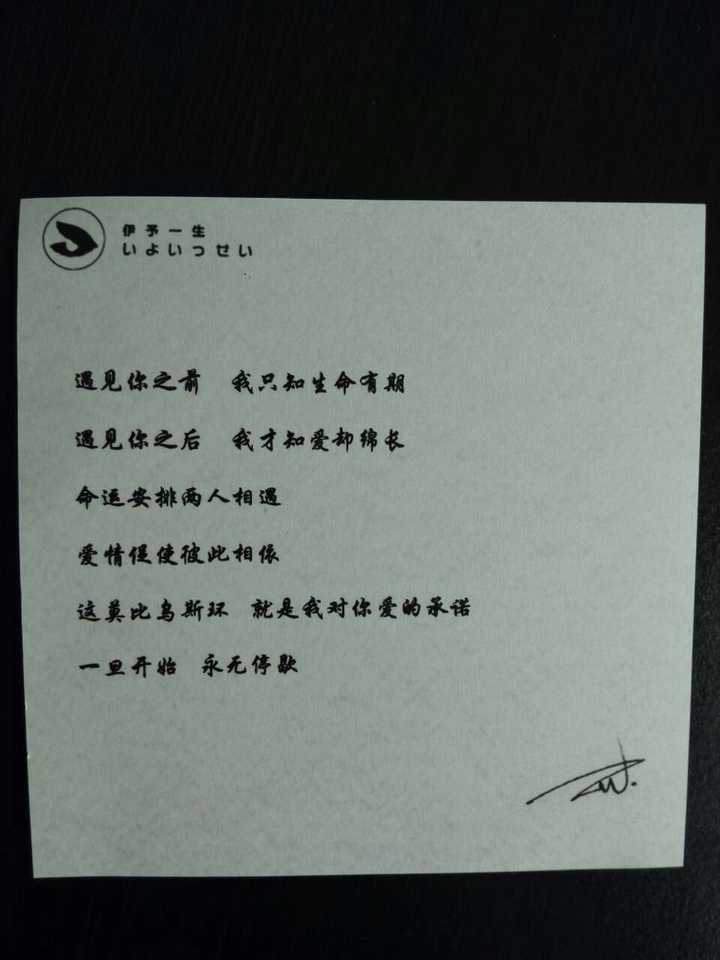 伊予一生
いよいっせい
遇见你之前 我只知生命有期
遇见你之后 我才知爱却绵长
命运安排两人相遇
爱情促使彼此相依
这莫比乌斯环 就是我对你爱的承诺
一旦开始 永无停歇